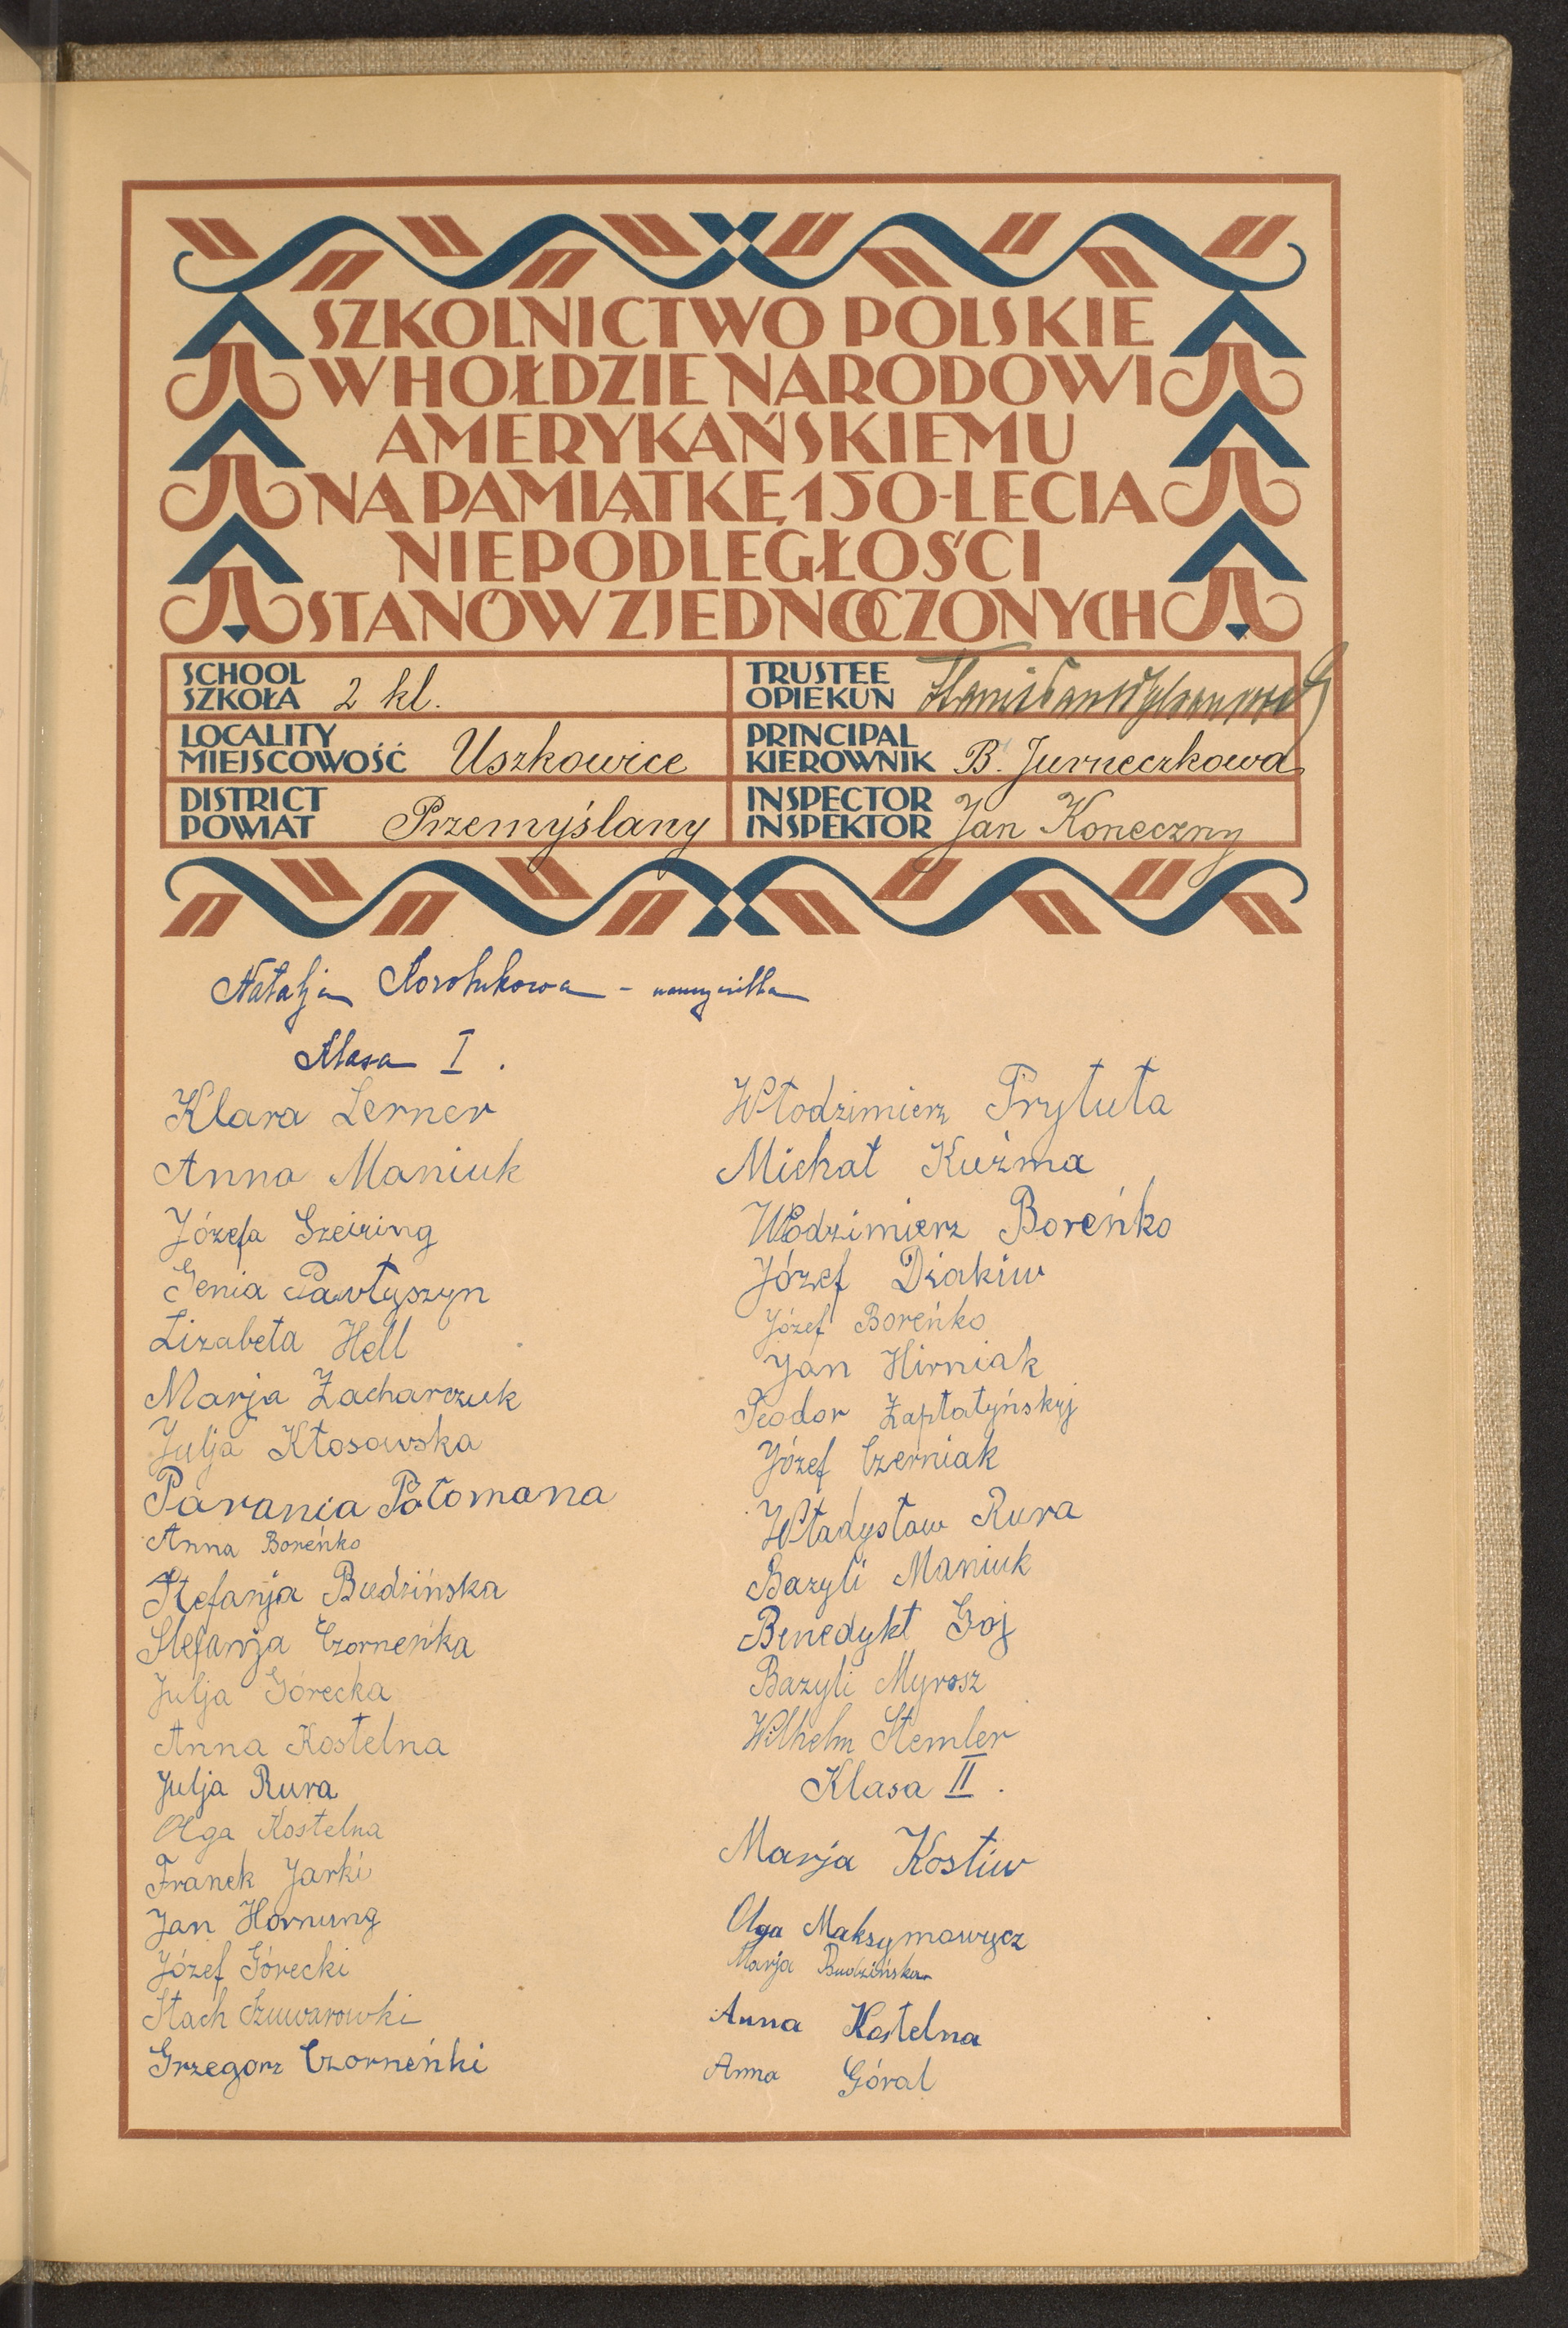 SZKOLNICTWO POLSKIE
W HOŁDZIE NARODOWI
AMERYKAŃSKIEMU
NA PAMIĄTKĘ 150-LECIA
NIEPODLEGŁOŚCI
STANÓW ZJEDNOCZONYCH
SCHOOL
SZKOŁA 2 kl.
LOCALITY
MIEJSCOWOŚĆ Uszkowice
DISTRICT
POWIAT Przemyślany
TRUSTEE
OPIEKUN
PRINCIPAL
KIEROWNIK B. Jurneczkowa
INSPECTOR
INSPEKTOR Jan Koneczny
Natalja - nauczycielka
Klasa I.
Klara Lerner
Anna Maniuk
Józefa Szeiring
Genia Pawłyszyn
Lizabeta Hell
Marja Zacharczuk
Julja Kłosowska
Parania Połomana
Anna Boreńko
Stefanja Budzińska
Stefanja Czorneńka
Julja Górecka
Anna Kostelna
Julja Rura
Olga Kostelna
Franek Jarki
Jan Hornung
Józef Górecki
Stach Szuwarowki
Grzegorz Czorneńki
Włodzimierz Prytuła
Michał Kuźma
Włodzimierz Boreńko
Józef Diakiw
Józef Boreńko
Jan Hirniak
Teodor Zapłatyńskyj
Józef Czerniak
Władysław Rura
Bazyli Maniuk
Benedykt Goj
Bazyli Myrosz
Wilhelm Stemler
Klasa II.
Marja Kostiw
Olga Maksymowycz
Marja Budzińska
Anna Kostelna
Anna Góral